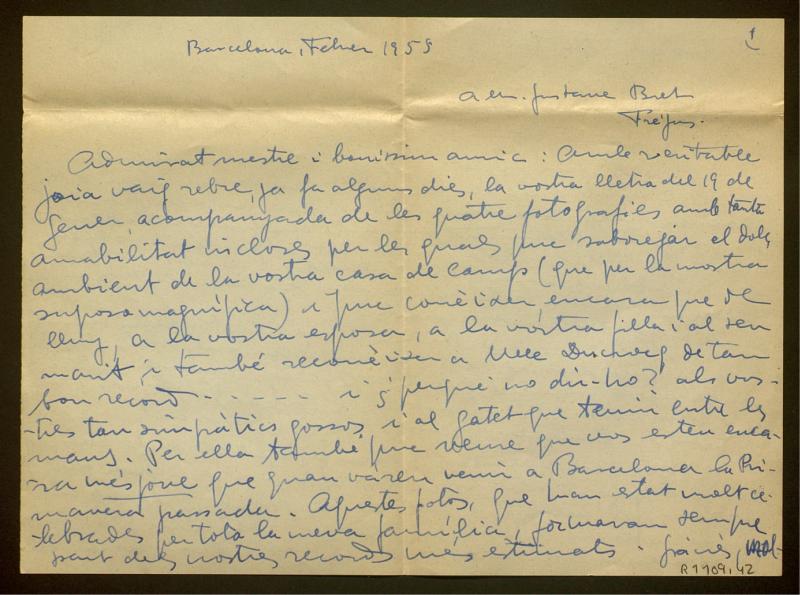 1
Barcelona, Febrer 1959
a en. Gustave Bret
Fréjus.
Admirat mestre i boníssim amic: Amb veritable
joia vaig rebre, ja fa alguns dies, la vostra lletra del 19 de
Gener, acompanyada de les quatre fotografies amb tanta
amabilitat incloses per les quals puc saborejar el dolç
ambient de la vostra casa de camp (que per la mostra
suposo magnífica) i puc conèixer, encara que de
lluny, a la vostra esposa, a la vostra filla i al seu
marit, i també reconèixer a Melle Ducrocq de tan
bon record - - - - - i ¿perquè no dir-ho? als vos-
tres tan simpàtics gossos i al gatet que teniu entre les
mans. Per ella també puc veure que vos esteu enca-
ra més jove que quan vàreu venir a Barcelona la Pri-
mavera passada. Aquestes fotos, que han estat molt ce-
lebrades per tota la meva família, formaran sempre
part dels nostres records més estimats. Gràcies, mol-
R1109,42